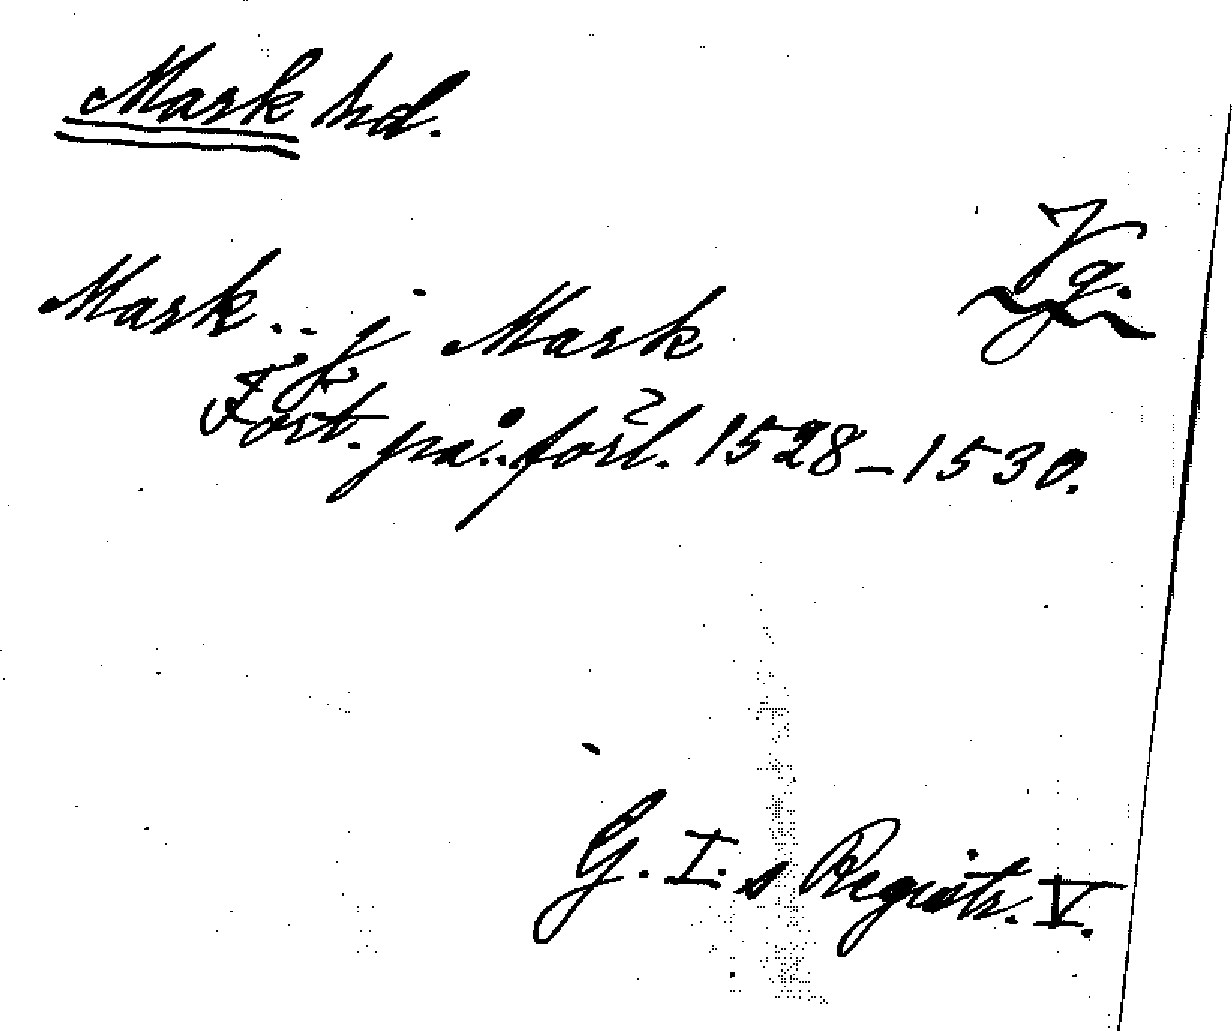 Mark hd.
Vg.
Mark.. j Mark
Fört. på.. förl. 1528–1530.
G. I:s Registr. V.